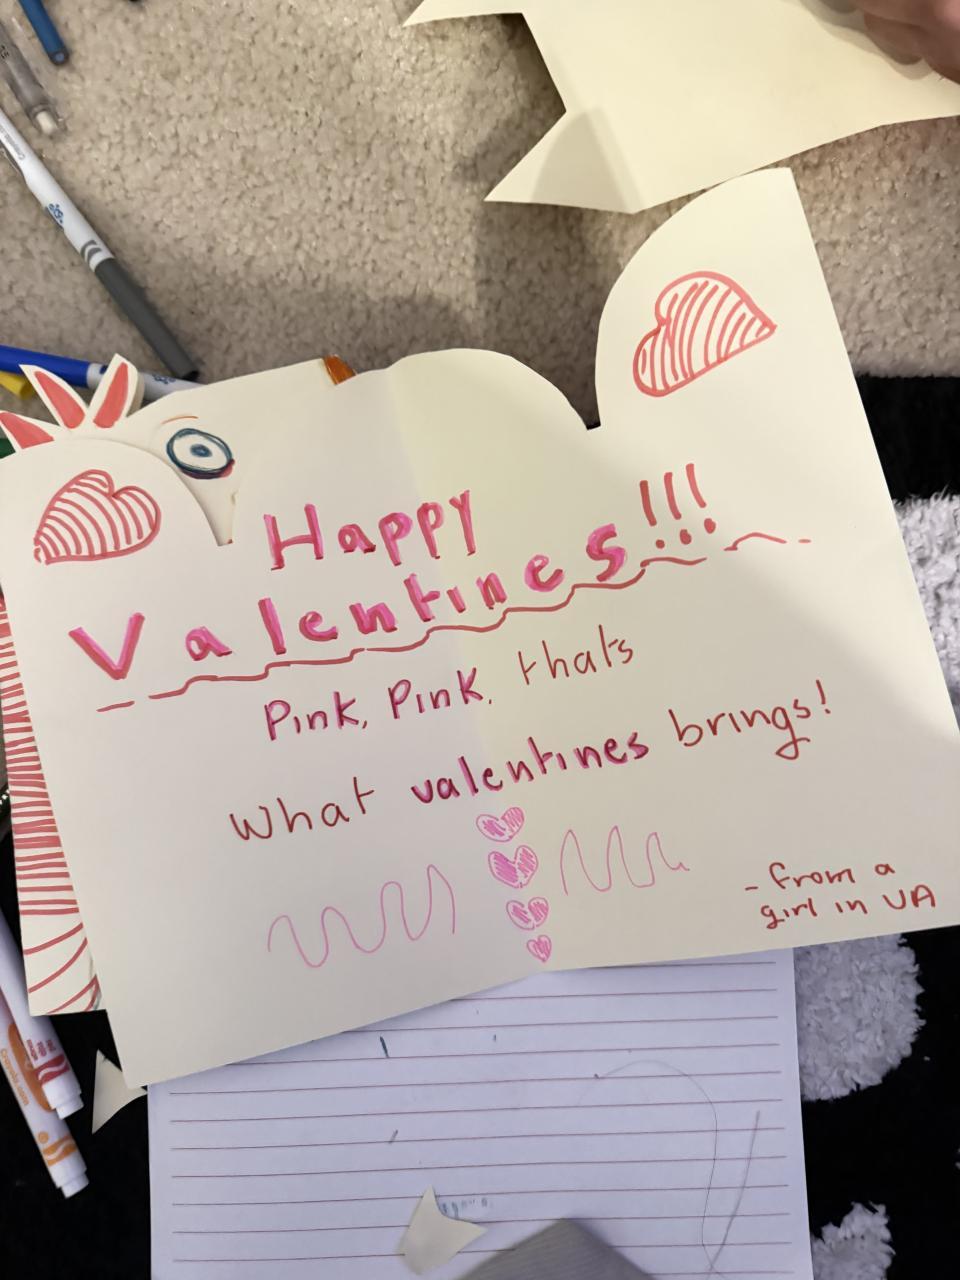 Happy
Valentines!!!
Pink, Pink, thats
What valentines brings!
- from a
girl in VA